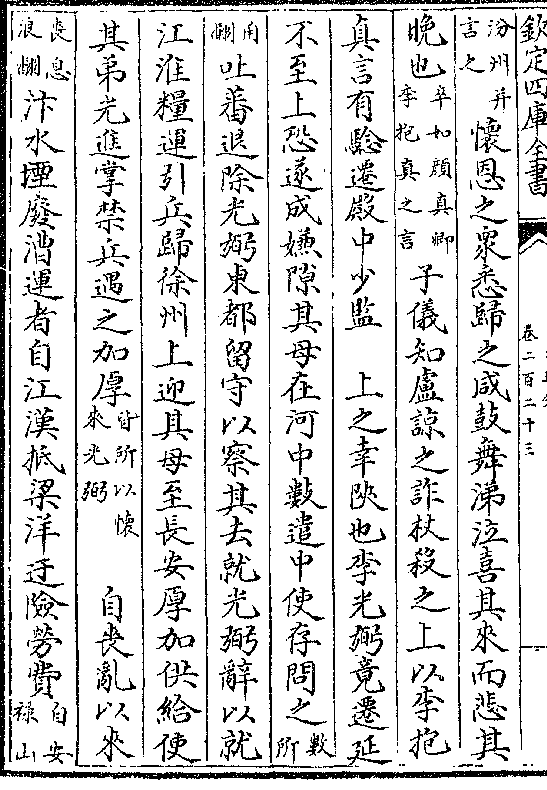 欽定四庫全書
卷二百二十三
汾州并言之懷恩之衆悉歸之咸鼓舞涕泣喜其來而悲其
晚也卒如顔真卿李抱真之言子儀知盧諒之詐杖殺之上以李抱
真言有驗遷殿中少監 上之幸陜也李光弼竟遷延
不至上恐遂成嫌隙其母在河中數遣中使存問之數所
角翻吐蕃退除光弼東都留守以察其去就光弼辭以就
江淮糧運引兵歸徐州上迎其母至長安厚加供給使
其弟光進掌禁兵遇之加厚皆所以懷來光弼 自喪亂以來
喪息浪翻汴水堙廢漕運者自江漢抵梁洋迂險勞費自安禄山